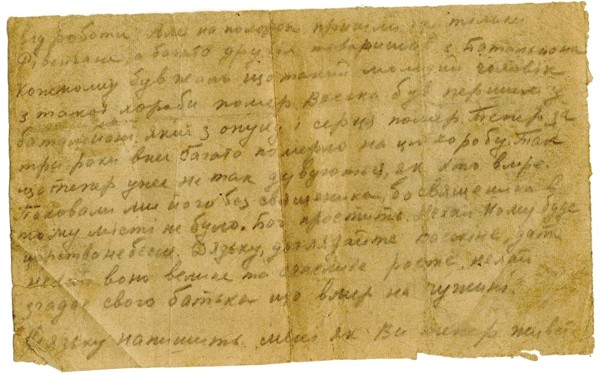 від роботи. Але на похорон прийшли не тільки
а багато других товаришів з баталіона
Кожному був жаль що такий молодий чоловік
з такої хороби помер. Васька був перший у
баталіоні який з опуху серця помер. Тепер за
три роки вже багато померло на цю хоробу. Так
що тепер уже не так дивуються, як хто вмре.
Поховали ми його без священика, бо священика в
тому місті не було. Бог простить. Нехай йому буде
царство небесне. Дядьку, доглядайте
нехай воно велике та щасливе росте, нехай
згадає свого батька що вмер на чужині.
Дядьку напишіть мені як Ви тепер живете